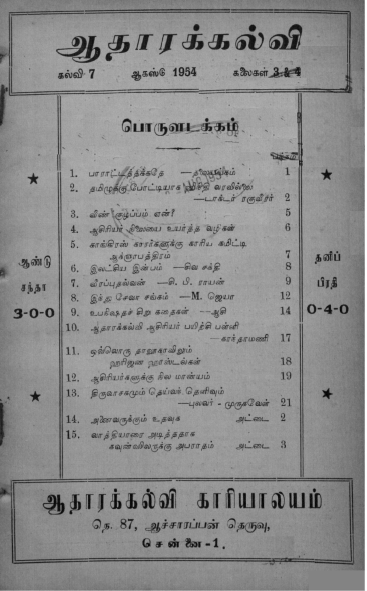 ஆதாரக்கல்வி
கல்வி 7 ஆகஸ்ட் 1954 கலைகள் 3 & 4
பொருளடக்கம்
1. பாராட்டத்தக்கதே —தலையங்கம் 1
2. தமிழுக்கு போட்டியாக ஹிந்தி வரவில்லை
—டாக்டர் ரகுவீரர் 2
3. வீண் குழப்பம் ஏன்? 5
4. ஆசிரியர் நிலையை உயர்த்த வழிகள் 6
5. காங்கிரஸ் காரர்களுக்கு காரிய கமிட்டி
ஆக்ஞாபத்திரம் 7
6. இலட்சிய இன்பம் —சிவ சக்தி 8
7. வீரப்புதல்வன் —சி. பி. ராயன் 9
8. இந்து சேவா சங்கம் —M. ஜெயா 12
9. உபநிஷதச் சிறு கதைகள் —ஆதி 14
10. ஆதாரக்கல்வி ஆசிரியர் பயிற்சி பள்ளி
—காந்தாமணி 17
11. ஒவ்வொரு தாலூகாவிலும்
ஹரிஜன ஹாஸ்டல்கள் 18
12. ஆசிரியர்களுக்கு நில மான்யம் 19
13. திருவாசகமும் தெய்வத் தெளிவும்
—புலவர் - முருகவேள் 21
14. அனைவருக்கும் உதவுக அட்டை 2
15. வாத்தியாரை அடித்ததாக
கவுண்ஸிலருக்கு அபராதம் அட்டை 3
ஆண்டு
சந்தா
3-0-0
தனிப்
பிரதி
0-4-0
ஆதாரக்கல்வி காரியாலயம்
நெ. 87, ஆச்சாரப்பன் தெருவு,
சென்னை-1.